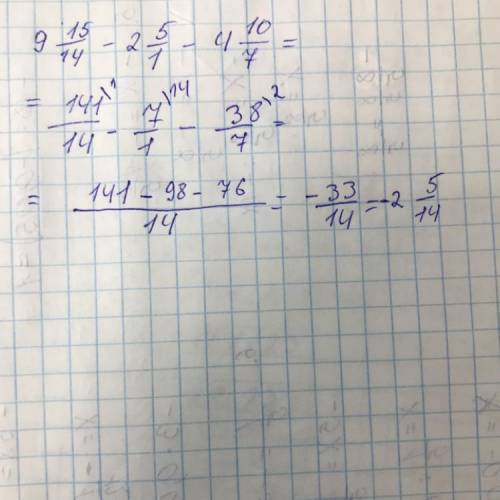 9 15/14 - 2 5/1 - 4 10/7 =
= 141\1/14 - 7\14/1 - 38\2/7 =
= 141 - 98 - 76/14 = - 33/14 = -2 5/14